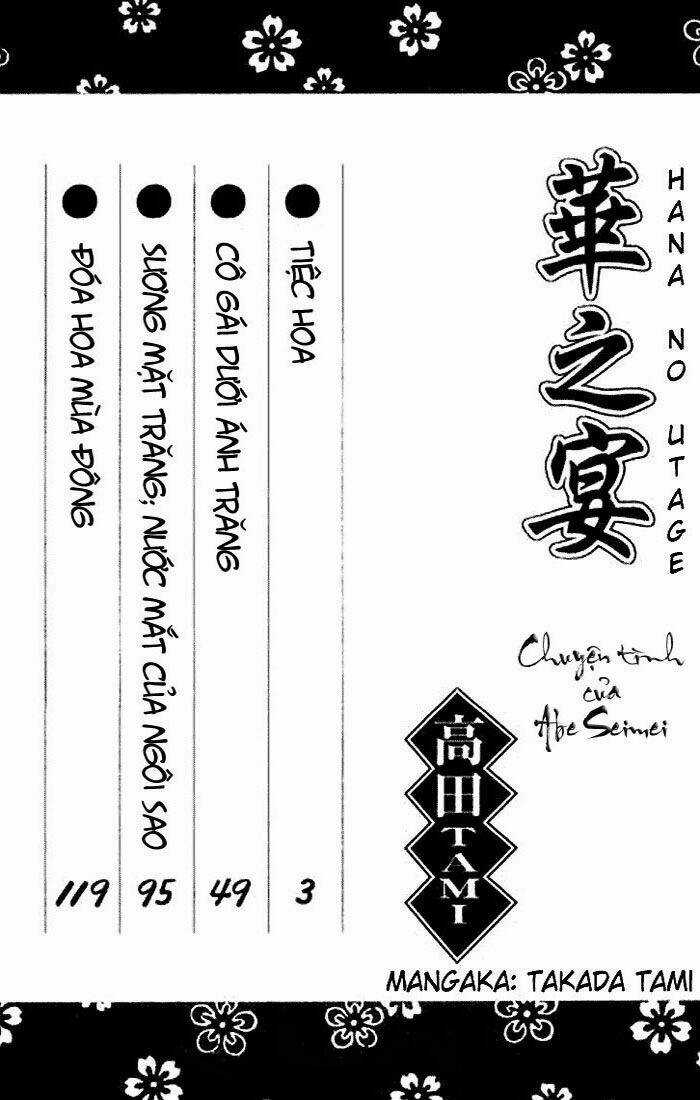 華之宴
HANA NO UTAGE
Chuyện tình
của
Abe Seimei
高田TAMI
MANGAKA: TAKADA TAMI
● TIỆC HOA 3
● CÔ GÁI DƯỚI ÁNH TRĂNG 49
● SƯƠNG MẶT TRĂNG; NƯỚC MẮT CỦA NGÔI SAO 95
● ĐÓA HOA MÙA ĐÔNG 119